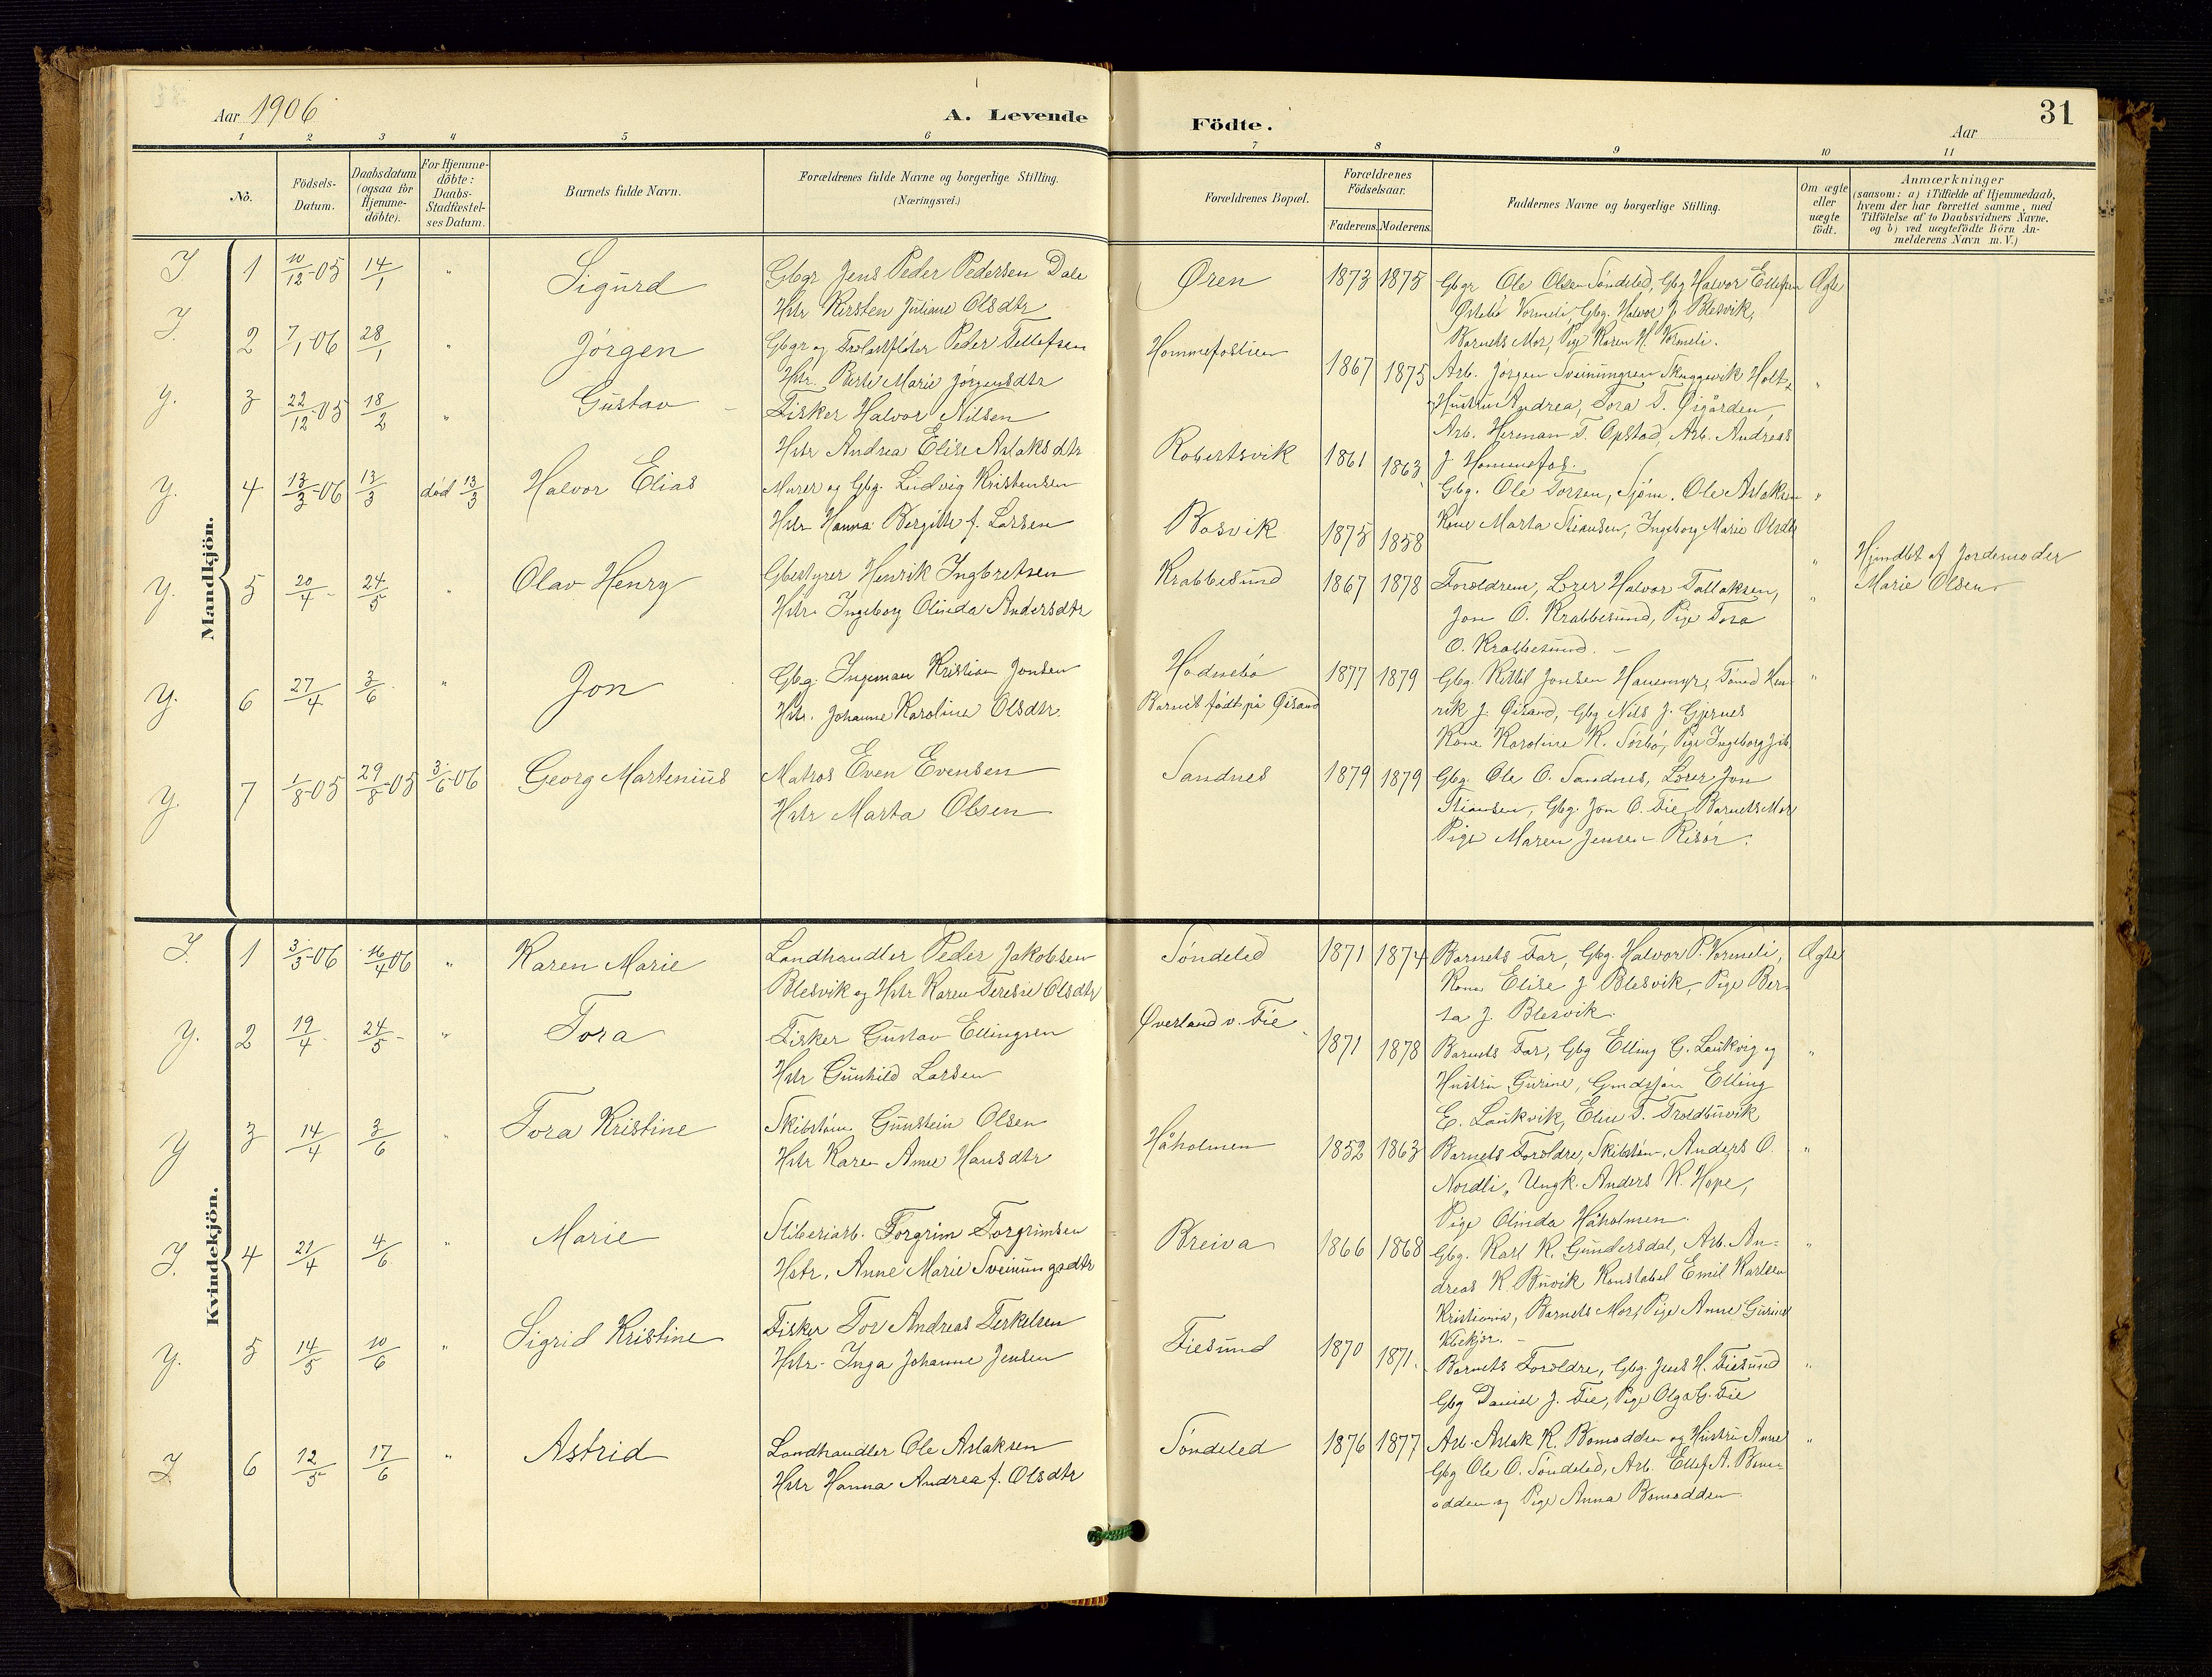 Aar 1906
A. Levende
Födte.
Aar
31
1 2 3 4 5 6 7 8 9 10 11
No.
Födsels-
Datum.
Daabsdatum
(ogsaa for
Hjemme-
döbte).
For Hjemme-
döbte:
Daabs-
Stadfæstel-
ses Datum.
Barnets fulde Navn.
Forældrenes fulde Navne og borgerlige Stilling.
(Næringsvei.)
Forældrenes Bopæl.
Forældrenes
Födselsaar.
Faderens. Moderens.
Faddernes Navne og borgerlige Stilling.
Om ægte
eller
uægte
födt.
Anmærkninger
(saasom: a) i Tilfælde af Hjemmedaab,
hvem der har forrettet samme, med
Tilföielse af to Daabsvidners Navne.
og b) ved uægtefödte Börn An-
melderens Navn m. V.)
Mandkjön.
I. 1 10/12-05 14/1 " Sigurd Gbgr Jens Peder Pedersen Dale
Hstr Kirsten Juliane Olsdtr
Øren 1873 1875 Gbgr Ole Olsen Søndeled, Gbg Halvor Ellefsen Ægte
Vormeli, Gbg. Halvor J. Blesvik,
Barnets Mor, Pige Karen H. Vormeli.
I. 2 7/1-06 28/1 " Jørgen Gbgr og Peder Tellefsen
Hstr. Berte Marie Jørgensdtr
Hommefostien 1867 1875 Arb. Jørgen Sveinungsen Skuggevik Holt, "
Hustru Andrea, Tora T. Øigården,
Arb. Herman T. Opstad, Arb. Andreas
J. Hommefos.
Y. 3 22/12-05 18/2 " Gustav Fisker Halvor Nilsen
Hstr Andrea Elise Aslaksdtr
Robertsvik 1861 1863 Gbg. Ole Torsen, Sjøm. Ole Aslaksen "
Kone Marta Stiansen, Ingeborg Marie Olsdtr
Y. 4 13/3-06 13/3 død 13/3 Halvor Elias Murer og Gbg. Ludvig Kristensen
Hstr Hanna Bergitte f. Larsen
Bosvik 1875 1858 " Hjmdbt af Jordemoder
Marie Olsen
Y. 5 20/4 24/5 " Olav Henry Gbestyrer Henrik Ingbretsen
Hstr. Ingeborg Olinda Andersdtr
Krabbesund 1867 1878 Foreldrene, Lærer Halvor Tallaksen, "
Jon O. Krabbesund, Pige Tora
O. Krabbesund.
Y. 6 27/4 3/6 " Jon Gbg. Ingeman Kristian Jonsen
Hstr. Johanne Karoline Olsdtr.
Hodnebø
Barnet født på Øisand
1877 1879 Gbg. Kittil Jonsen Hanemyr, Tømd Hen- "
rik J. Øisand, Gbg Nils J. Gjernes
Kone Karoline K. Sørbø, Pige Ingeborg
Y. 7 1/8-05 29/8-05 3/6-06 Georg Martenius Matros Even Evensen
Hstr Marta Olsen
Sandnes 1879 1879 Gbg. Ole O. Sandnes, Lærer Jon
Stiansen, Gbg. Jon O. Fie, Barnets Mor
Pige Maren Jensen Risør.
Kvindekjön.
I. 1 3/3-06 16/4 06 " Karen Marie Landhandler Peder Jakobsen
Blesvik og Hstr Karen Teresie Olsdtr
Søndeled 1871 1874 Barnets Far, Gbg. Halvor P. Vormeli, Ægte
Kone Elise J Blesvik, Pige Ber-
ta J. Blesvik.
Y. 2 19/4 24/5 " Tora Fisker Gustav Ellingsen
Hstr Gunhild Larsen
Øverland v. Fie 1871 1878 Barnets Far, Gbg Elling G. Laukvig og "
Hustru Gurine, Elling
E. Laukvik, Elise T. Troldbuvik
Y 3 14/4 3/6 " Tora Kristine Skibstøm. Gunstein Olsen
Hstr Karen Anne Hansdtr
Håholmen 1852 1863 Barnets Foreldre, Skibstøm. Anders O. "
Nordli, Ungk. Anders K. Hope,
Pige Olinda Håholmen.
I. 4 21/4 4/6 " Marie Sliberiarb. Torgrim Torgrimsen
Hstr. Anne Marie Sveinungsdtr
Breiva 1866 1868 Gbg. Karl K. Gundersdal, Arb. An- "
dreas K. Buvik Konstabel Emil Karlsen
Kristiania, Barnets Mor, Pige Anne Gurine
Y. 5 14/5 10/6 " Sigrid Kristine Fisker Tor Andreas Terkelsen
Hstr. Inga Johanne Jensen
Fiesund 1870 1871. Barnets Foreldre, Gbg. Jens H. Fiesund "
Gbg Daniel J. Fie, Pige Olga G. Fie
I. 6 12/5 17/6 " Astrid Landhandler Ole Aslaksen
Hstr Hanna Andrea f. Olsdtr
Søndeled 1876 1877 Arb. Aslak K. Bomodden og Hustru Anne "
Gbg Ole O. Søndeled, Arb. Ellef A. Bom-
odden og Pige Anna Bomodden